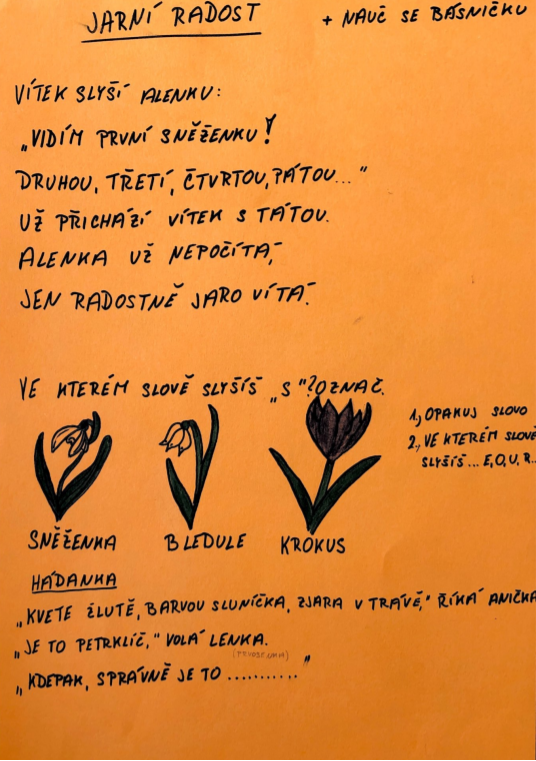 JARNÍ RADOST
+ NAUČ SE BÁSNIČKU
VÍTEK SLYŠÍ ALENKU:
„VIDÍM PRVNÍ SNĚŽENKU!
DRUHOU, TŘETÍ, ČTVRTOU, PÁTOU..."
UŽ PŘICHÁZÍ VÍTEK S TÁTOU.
ALENKA UŽ NEPOČÍTÁ,
JEN RADOSTNĚ JARO VÍTÁ.
VE KTERÉM SLOVĚ SLYŠÍŠ „S"? OZNAČ.
1., OPAKUJ SLOVO
2., VE KTERÉM SLOVĚ
SLYŠÍŠ ... E, O, U, R...
SNĚŽENKA BLEDULE KROKUS
HÁDANKA
„KVETE ŽLUTĚ, BARVOU SLUNÍČKA, ZJARA V TRÁVĚ," ŘÍKÁ ANIČKA
„JE TO PETRKLÍČ," VOLÁ LENKA.
(PRVOSENKA)
„KDEPAK, SPRÁVNĚ JE TO ..........."